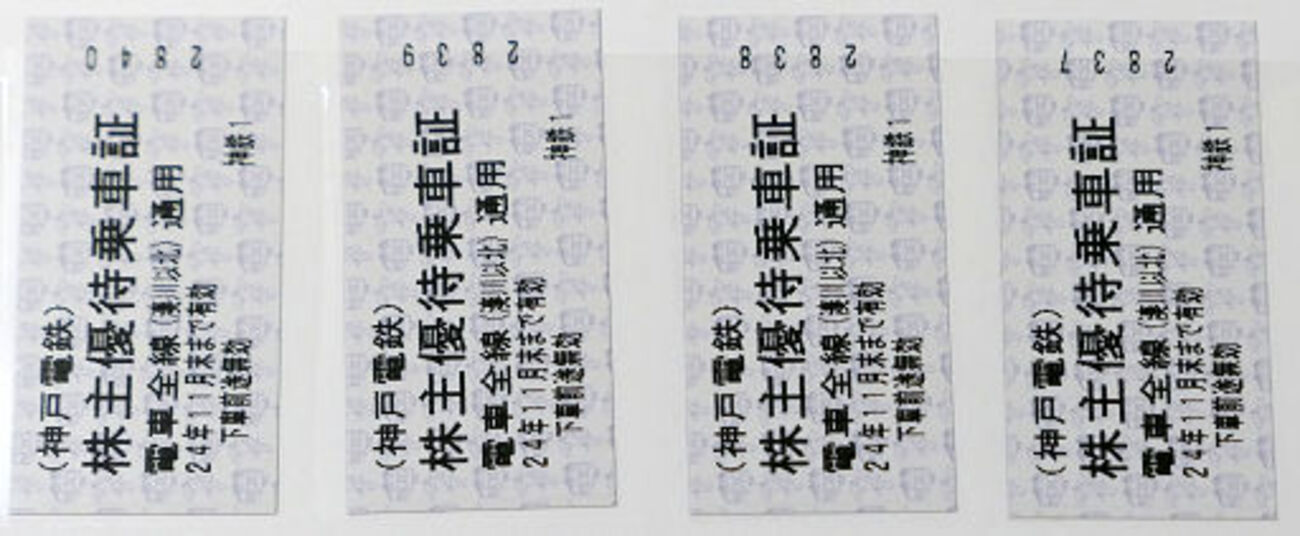 (神戸電鉄)
株主優待乗車証
電車全線(湊川以北)通用
24年11月末まで有効
下車前途無効
神鉄1
2840
(神戸電鉄)
株主優待乗車証
電車全線(湊川以北)通用
24年11月末まで有効
下車前途無効
神鉄1
2839
(神戸電鉄)
株主優待乗車証
電車全線(湊川以北)通用
24年11月末まで有効
下車前途無効
神鉄1
2838
(神戸電鉄)
株主優待乗車証
電車全線(湊川以北)通用
24年11月末まで有効
下車前途無効
神鉄1
2837